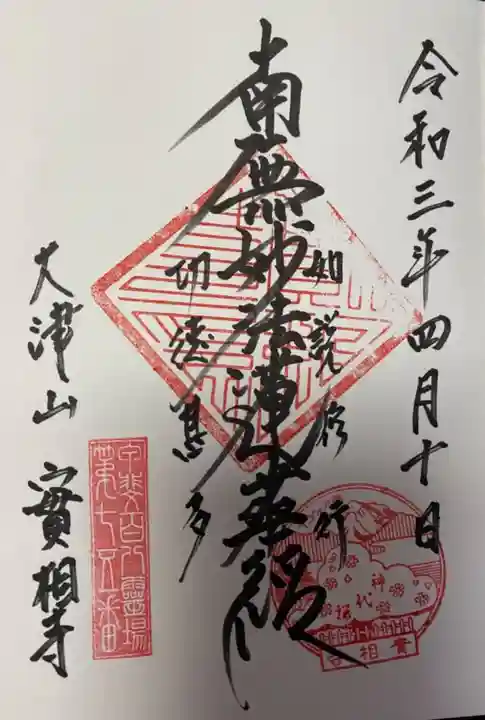 令和三年四月十日
如説修行
南無妙法蓮華経
功徳甚多
大津山 實相寺
甲斐百八霊場
第七五番
神代桜
實相寺